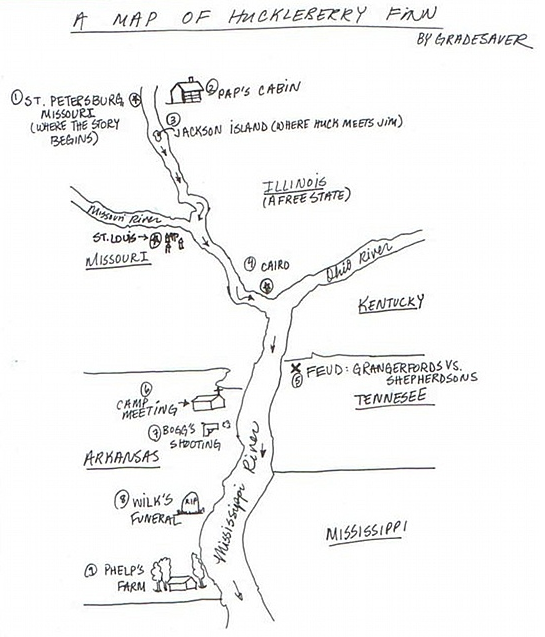 A MAP OF HUCKLEBERRY FINN
BY GRADESAVER
① ST. PETERSBURG
MISSOURI
(WHERE THE STORY
BEGINS)
② PAP'S CABIN
③
JACKSON ISLAND (WHERE HUCK MEETS JIM)
ILLINOIS
(A FREE STATE)
Missouri River
ST. LOUIS
MISSOURI
④ CAIRO
Ohio River
KENTUCKY
⑤ FEUD: GRANGERFORDS VS.
SHEPHERDSONS
TENNESEE
⑥
CAMP
MEETING
⑦ BOGG'S
SHOOTING
ARKANSAS
Mississippi River
⑧ WILK'S
FUNERAL
RIP
MISSISSIPPI
⑨ PHELP'S
FARM